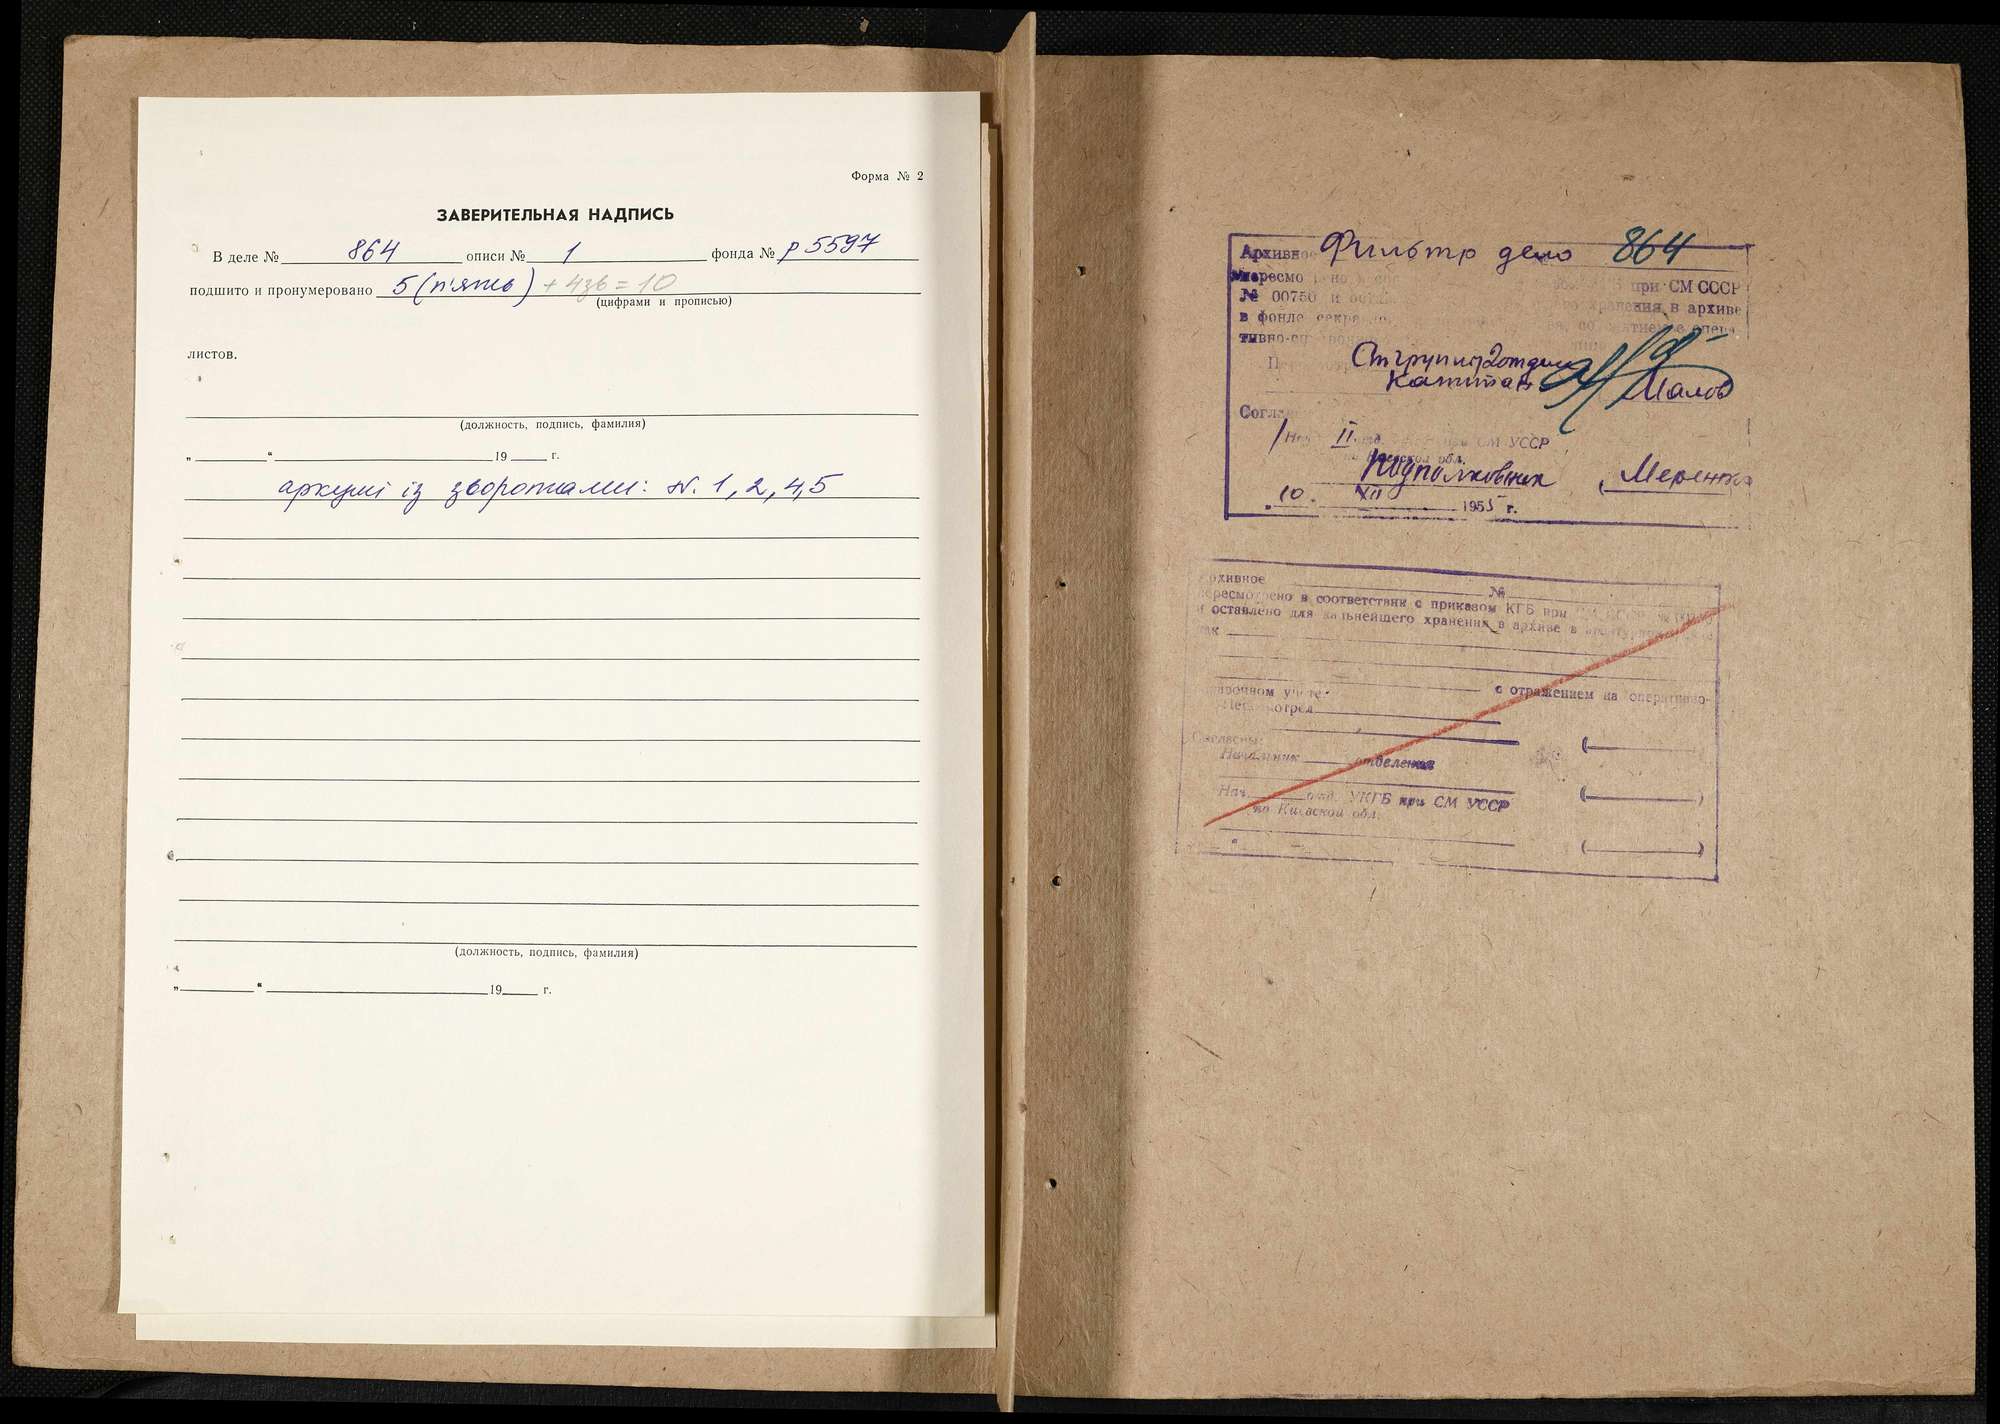 Форма № 2
ЗАВЕРИТЕЛЬНАЯ НАДПИСЬ
В деле № 864 описи № 1 фонда № р 5597
подшито и пронумеровано 5 (п'ять) + 4зв = 10
(цифрами и прописью)
листов.
(должность, подпись, фамилия)
„ “ 19 г.
аркуші із зворотами: N. 1, 2, 4, 5
(должность, подпись, фамилия)
„ “ 19 г.
Архивное Фильтр дело 864
при СМ СССР
№ 00750 и
хранения в архиве
в фонде
Капитан Малов
II отд. при СМ УССР
обл.
Подполковник
10. XII 1955 г.
Архивное №
пересмотрено в соответствии с приказом КГБ при
и оставлено для дальнейшего хранения в архиве в
как
с отражением на оперативно-
справочном учете.
Пересмотрел
Согласны:
Начальник отделения ( )
Нач. отд. УКГБ при СМ УССР ( )
по Киевской обл.
( )